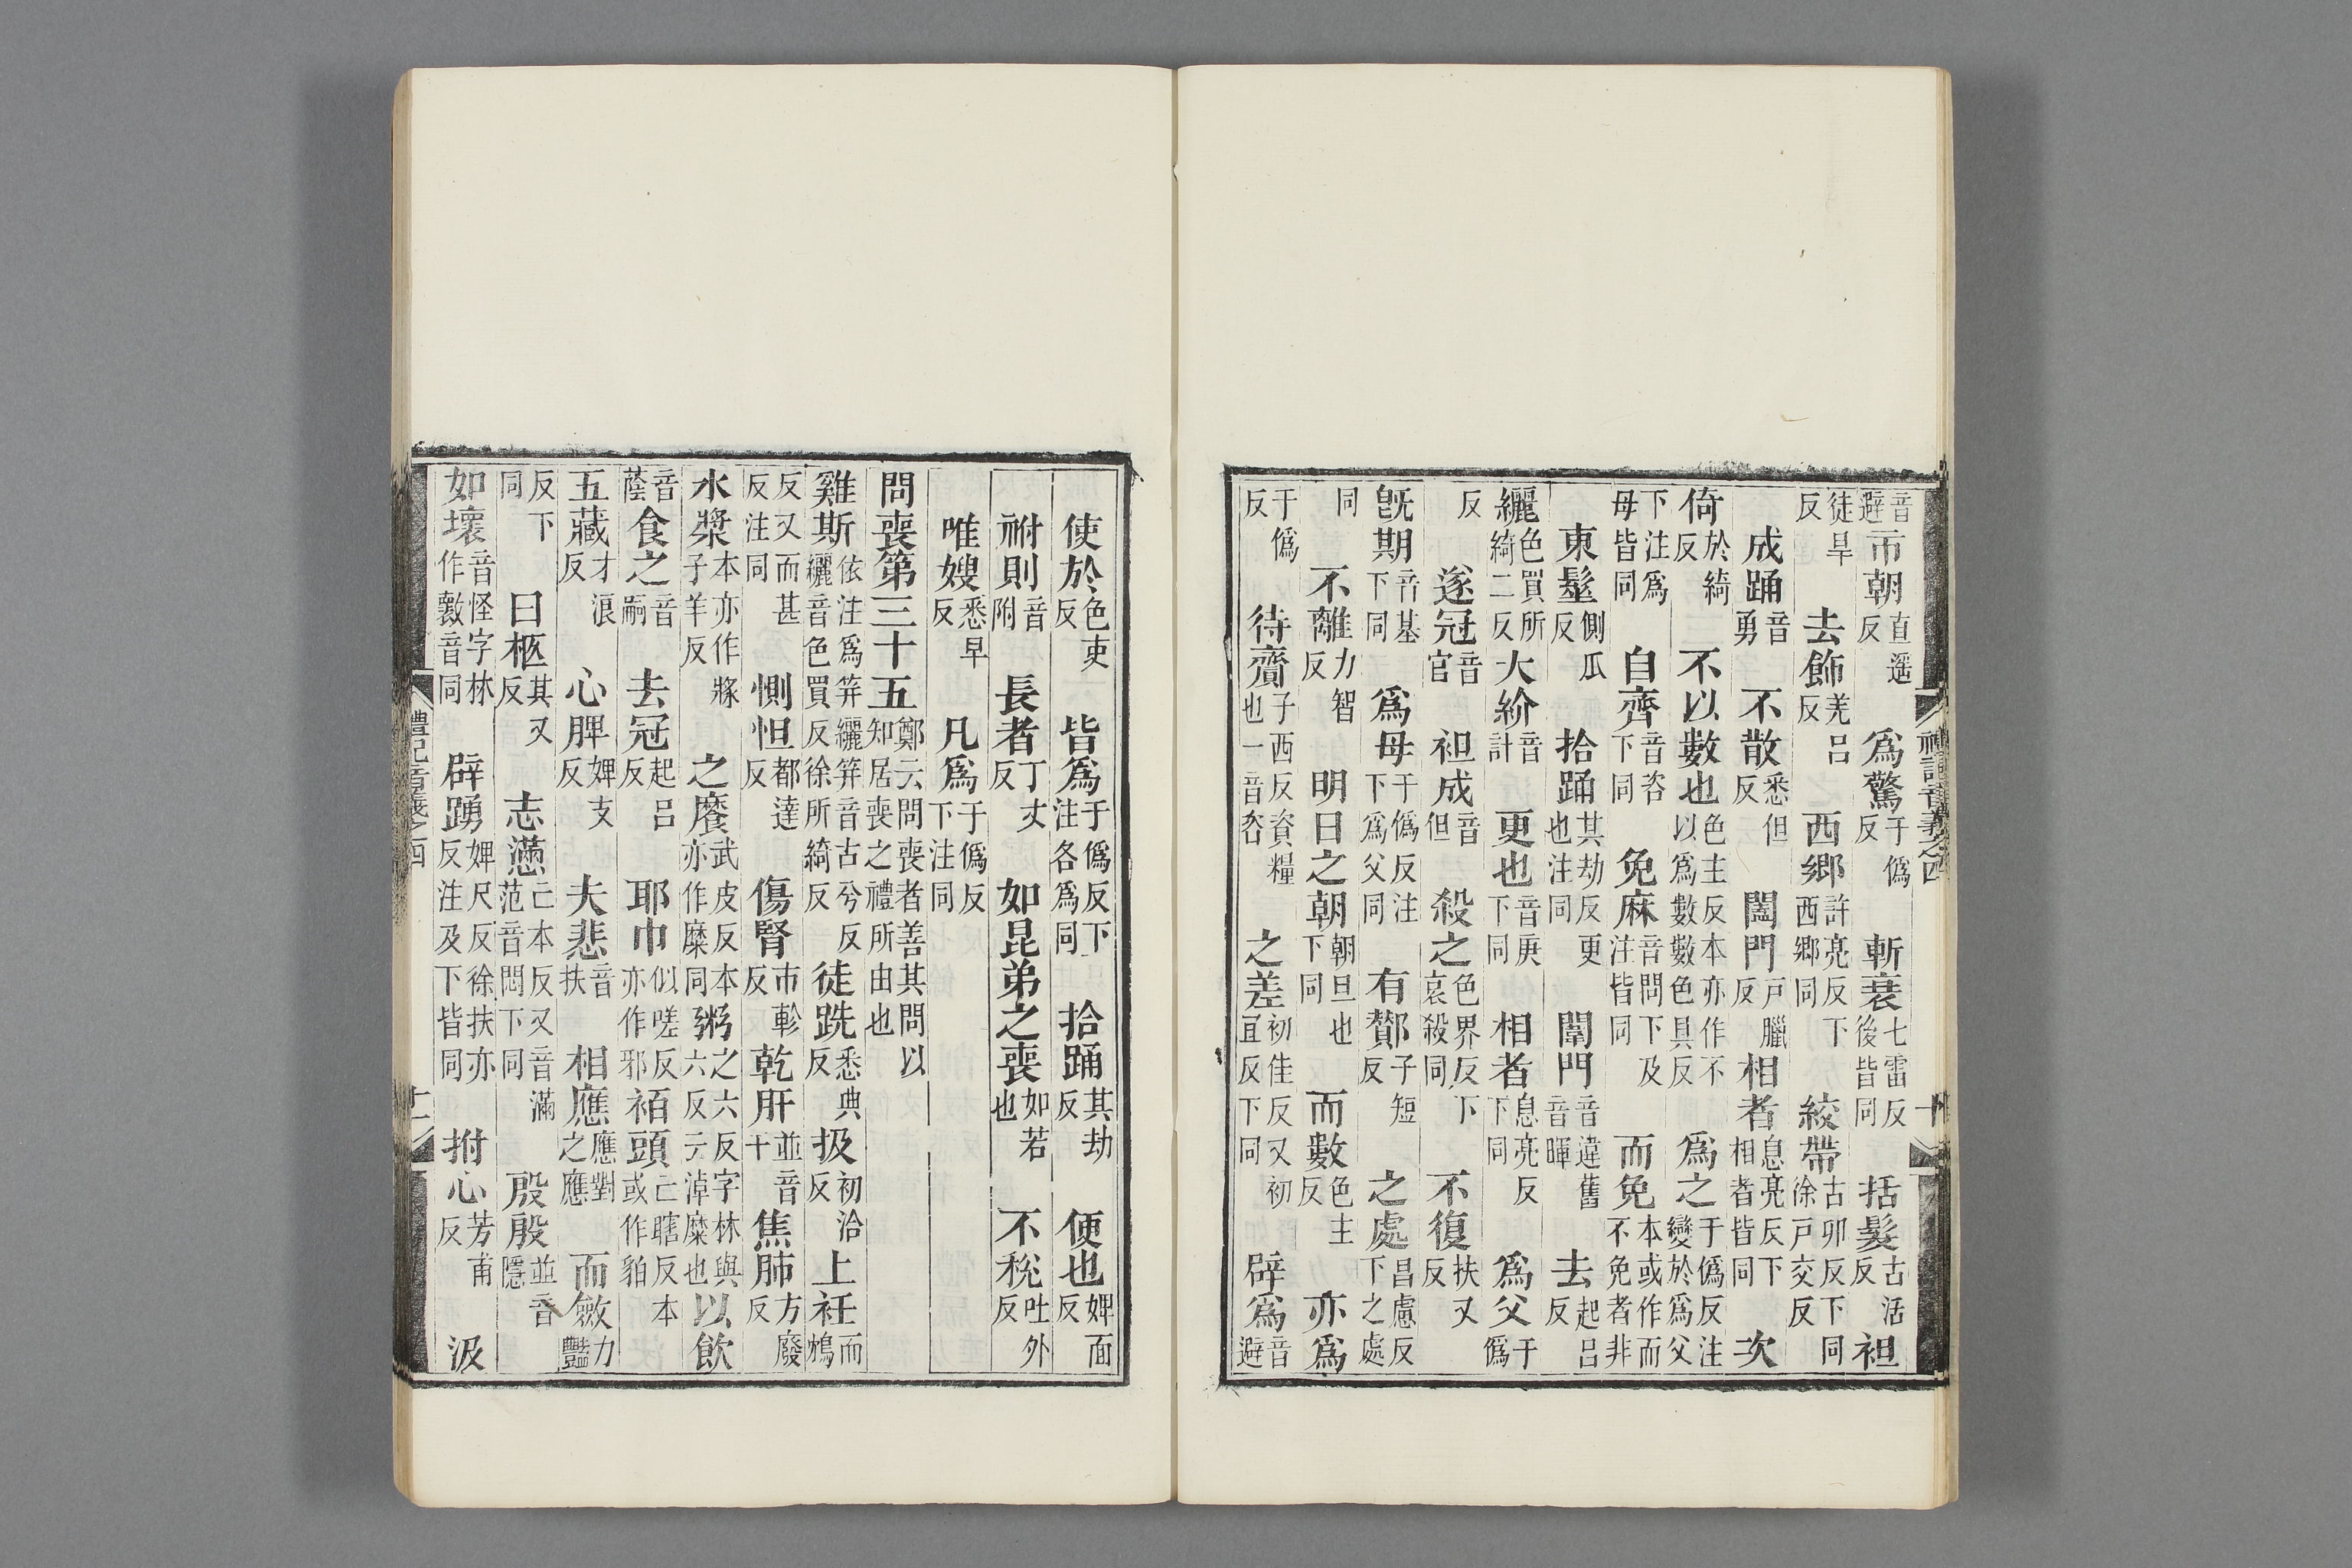 音避市朝直遥反爲驚于僞反斬衰七雷反後皆同括髮古活反袒
徒旱反去飾羌呂反西郷許亮反下西郷同絞帶古卯反下同徐戶交反
成踊音勇不散悉但反闔門戶臘反相者息亮反下相者皆同次
倚於綺反不以數也色主反本亦作不以爲數數色具反爲之于僞反注變於爲父
下注爲母皆同自齊音咨下同免麻音問下及注皆同而免本或作而不免者非
東髽側瓜反拾踊其劫反更也注同闈門音違舊音暉去起呂反
纚色買所綺二反大紒音計更也音庚下同相者息亮反下同爲父于僞
反遂冠音官袒成音但殺之色界反下哀殺同不復扶又反
旣期音基下同爲母于僞反注下爲父同有酇子短反之處昌慮反下之處
同不離力智反明日之朝朝旦也下同而數色主反亦爲
于僞反待齎子西反資糧也一音咨之差初佳反又初宜反下同辟爲音避
禮記音義之四
十
使於色吏反皆爲于僞反下注各爲同拾踊其劫反便也婢面反
祔則音附長者丁丈反如昆弟之喪如若也不稅吐外反
唯嫂悉早反凡爲于僞反下注同
問喪第三十五鄭云問喪者善其問以知居喪之禮所由也
雞斯依注爲笄纚笄音古兮反纚音色買反徐所綺反徒跣悉典反扱初洽反上衽而鴆
反又而甚反注同惻怛都達反傷腎市軫反乾肝並音干焦肺方廢反
水漿本亦作𤖅子羊反之糜武皮反本亦作麋同粥之六反字林與六反云淖糜也以飲
音蔭食之音嗣去冠起呂反耶巾似嗟反亦作邪袹頭亡瞎反本或作貊
五藏才浪反心脾婢支反夫悲音扶相應應對之應而斂力豔
反下同曰柩其又反志懣亡本反又音滿范音悶下同殷殷並音隱
如壞音怪字林作𣀩音同辟踊婢尺反徐扶亦反注及下皆同拊心芳甫反汲
禮記音義之四
十一